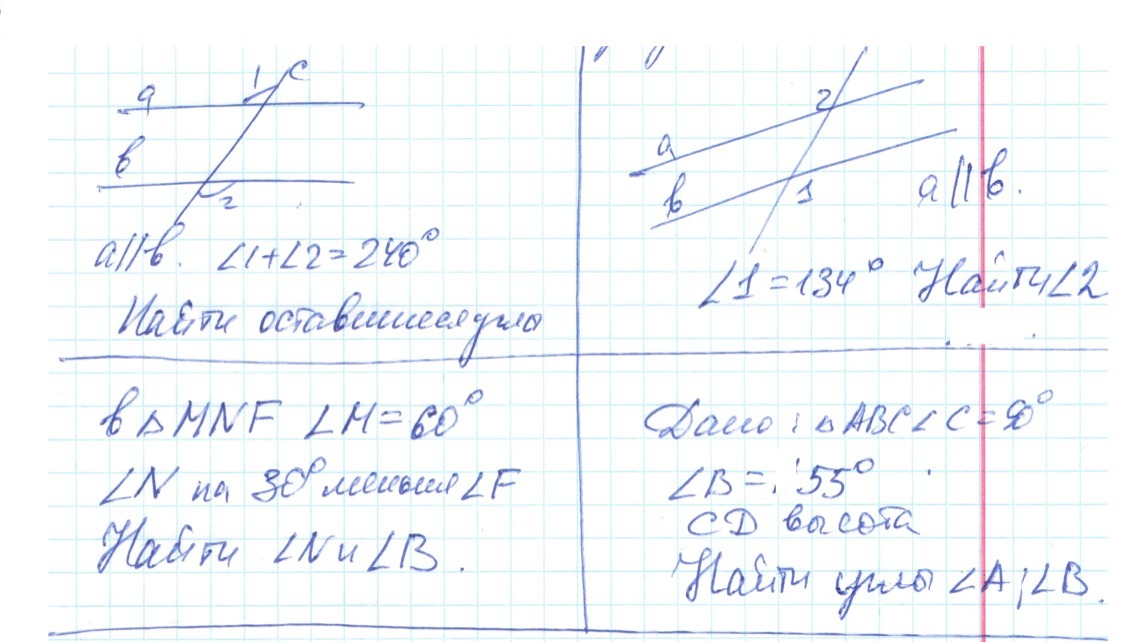 a
1
c
в
2
a||в. ∠1+∠2=240°
Найти оставшиеся углы
2
a
в
1
a||в.
∠1=134° Найти ∠2
в △MNF ∠M=60°
∠N на 30° меньше ∠F
Найти ∠N и ∠B.
Дано: △ABC ∠C=90°
∠B=55°
CD высота
Найти углы ∠A; ∠B.